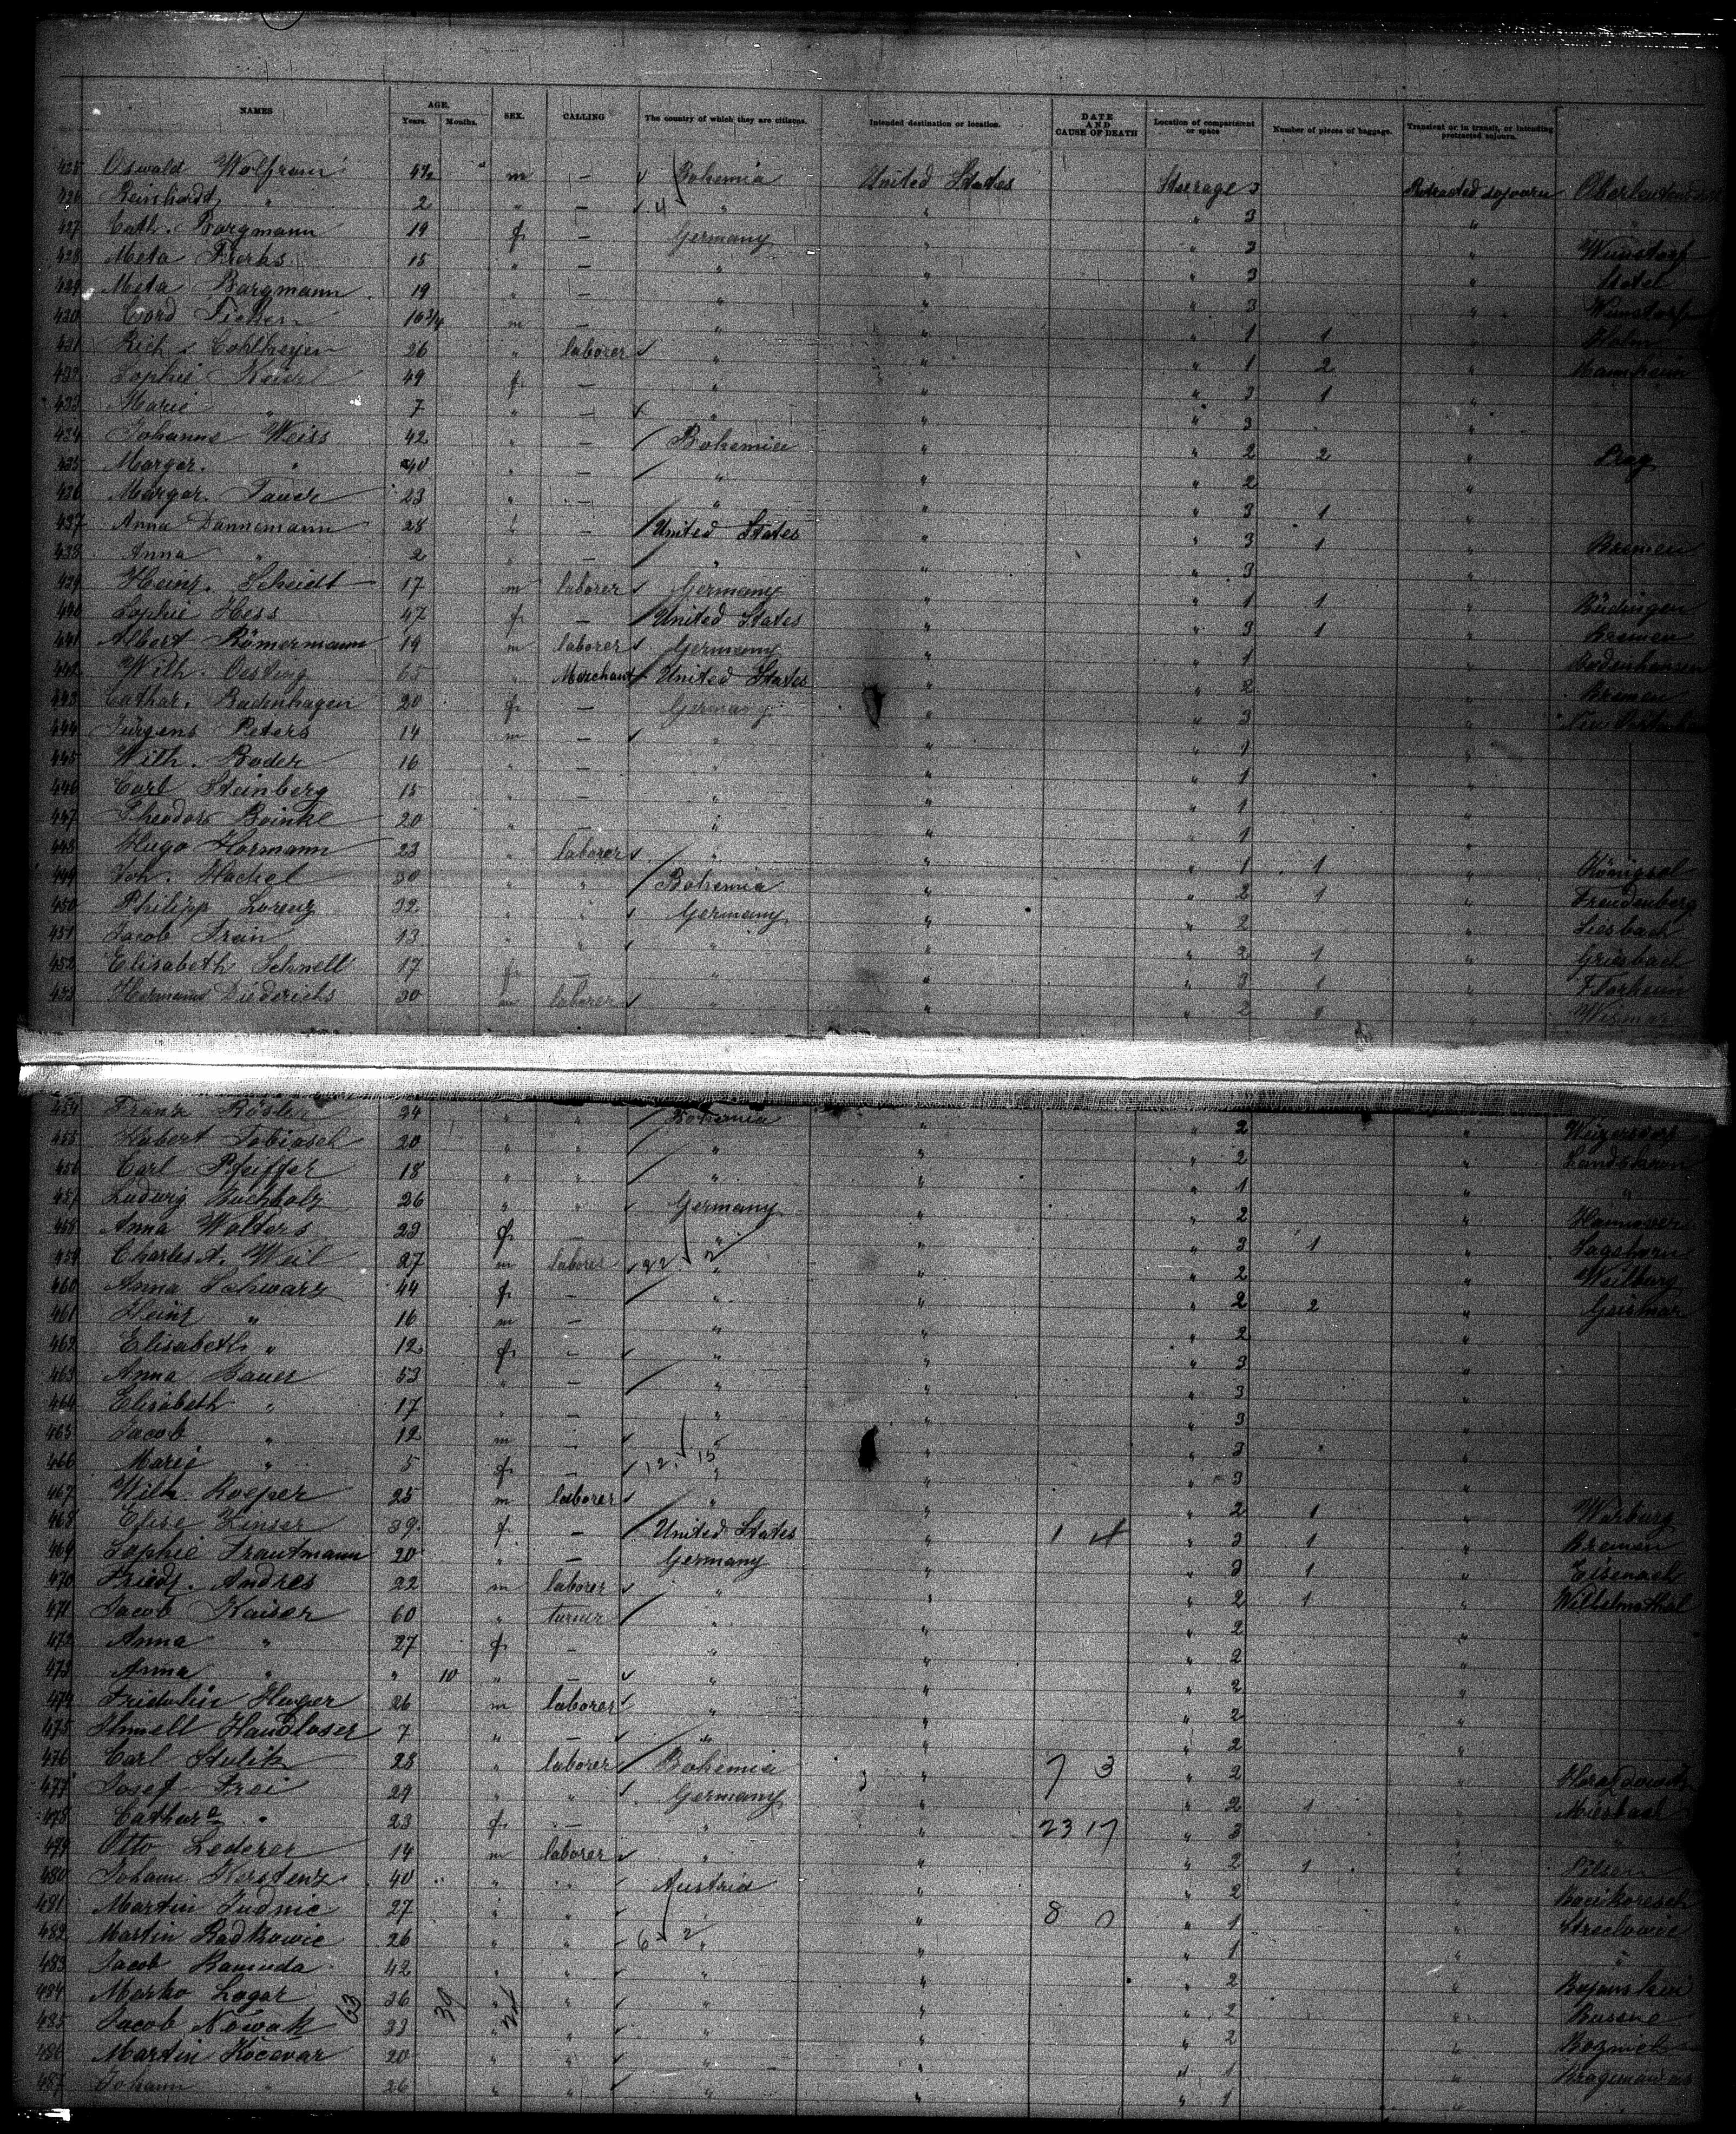 NAMES AGE. Years. Months. SEX. CALLING The country of which they are citizens. Intended destination or location. DATE AND CAUSE OF DEATH Location of compartment or space Number of pieces of baggage. Transient or in transit, or intending protracted sojourn.
425 Oswald Wolfram m — Bohemia United States Steerage 3 Protracted sojourn
426 Reinhardt " 2 " — " " " 3 "
427 Cath. Bargmann 19 f — Germany " " 3 " Wunstorf
428 Meta 15 " — " " " 3 "
429 Meta Bargmann 19 " — " " " 3 " Wunstorf
430 Cord 16 3/4 m — " " " 1 1 " Holm
431 Rich. 26 " laborer " " " 1 2 " Mannheim
432 Sophie 49 f — " " " 3 1 "
433 Marie " 7 " — " " " 3
434 Johanne Weiss 42 " — Bohemia " " 2 2 " Prag
435 Margar. " 40 " — " " " 2 "
436 Margar. 23 " — " " " 3 1 "
437 Anna Dannemann 28 " — United States " " 3 1 " Bremen
438 Anna " 2 " — " " " 3 "
439 Heinr. Scheidt 17 m laborer Germany " " 1 1 " Büdingen
440 Sophie Hess 47 f — United States " " 3 1 " Bremen
441 Albert Römermann 19 m laborer Germany " " 1 " Bodenhausen
442 Wilh. Oesting 65 " Merchant United States " " 2 " Bremen
443 Cathar. Badenhagen 20 f — Germany " " 3 "
444 Jürgens Peters 14 m — " " " 1 "
445 Wilh. Boder 16 " — " " " 1 "
446 Carl Steinberg 15 " — " " " 1 "
447 Theodor 20 " — " " " 1 "
448 Hugo Hormann 23 " laborer " " " 1 1 "
449 Joh. Hachel 30 " " Bohemia " " 2 1 " Freudenberg
450 Philipp Lorenz 32 " " Germany " " 2 "
451 Jacob 13 " " " " " 2 1 " Griesbach
452 Elisabeth Schnell 17 f — " " " 3 1 "
453 Hermann Diederichs 30 m laborer " " " 2 " Wismar
454 Franz Rösler 24 " " Bohemia " " 2 "
455 Hubert Tobiasch 20 " " " " " 2 " Landskron
456 Carl Pfeiffer 18 " " " " " 1 " "
457 Ludwig Buchholz 26 " " Germany " " 2 " Hannover
458 Anna Wolters 23 f — " " " 3 1 " Sagehorn
459 Charles A. Weil 27 m laborer 22 2 " " " 2 " Weilburg
460 Anna Schwarz 44 f — " " " 2 2 " Geismar
461 Heinr " 16 m — " " " 2 "
462 Elisabeth " 12 f — " " " 3 "
463 Anna Bauer 53 " — " " " 3 "
464 Elisabeth " 17 " — " " " 3
465 Jacob " 12 m — " " " 3 "
466 Marie " 5 f — 12 15 " " " 3 "
467 Wilh. Roeper 25 m laborer " " " 2 1 " Warburg
468 Elise Zinser 39 f — United States " 1 4 " 3 1 " Bremen
469 Sophie Trautmann 20 " — Germany " " 3 1 " Eisenach
470 Friedr. Andres 22 m laborer " " " 2 1 " Wilhelmsthal
471 Jacob Kaiser 60 " turner " " " 2 "
472 Anna " 27 f — " " " 2 "
473 Anna " " 10 " — " " " 2 "
474 Fridolin 26 m laborer " " " 2 "
475 Handloser 7 " — " " " 2 "
476 Carl Stulik 28 " laborer Bohemia 7 3 " 2 "
477 Josef Frei 29 " " Germany " " 2 1 " Miesbach
478 Cathara " 23 f — " " 23 17 " 3 " "
479 Otto Lederer 14 m laborer " " " 2 1 " Pilsen
480 Johann 40 " " Austria " " 2 "
481 Martin Judnic 27 " " " " 8 0 " 1 "
482 Martin Radkowic 26 " " 6 2 " " " 1 " "
483 Jacob Ramuda 42 " " " " " 2 "
484 Marko Lagar 36 " " " " " 2 "
485 Jacob Nowak 33 " " " " " 2 "
486 Martin Kocevar 20 " " " " " 1 "
487 Johann " 26 " " " " " 1 "
63 39 24